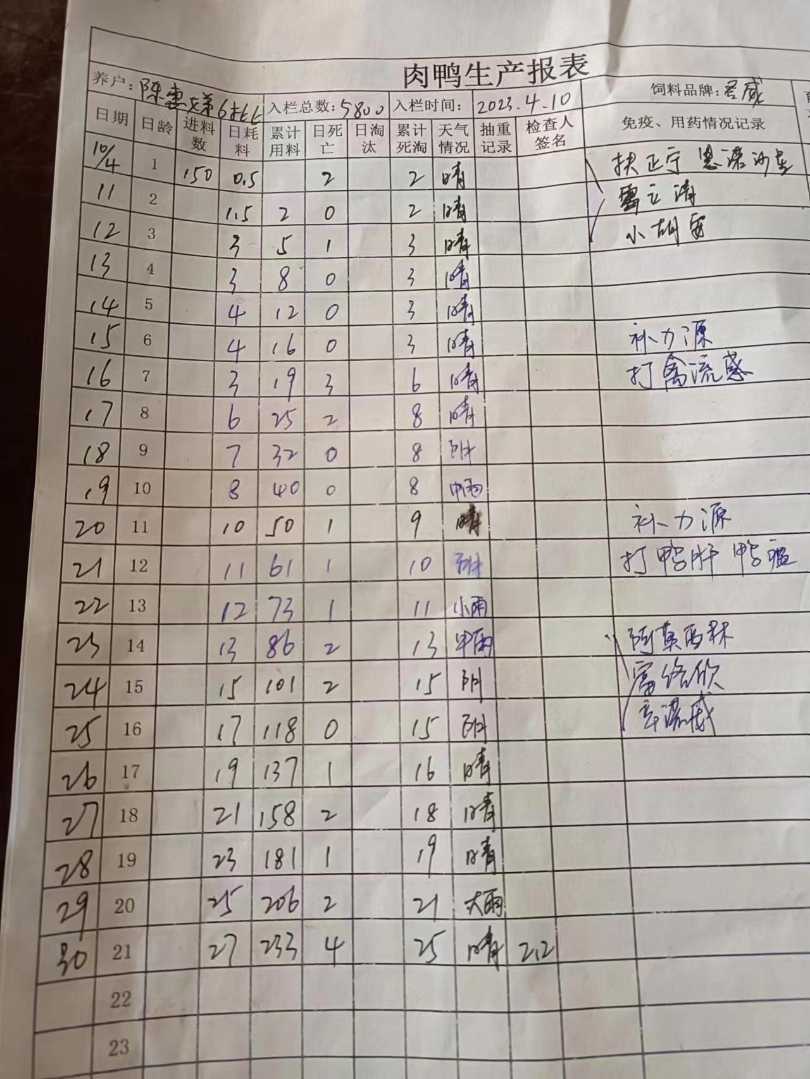 肉鸭生产报表
养户: 陈 兄弟6批 入栏总数: 5800 入栏时间: 2023.4.10 饲料品牌: 威
日期 日龄 进料数 日耗料 累计用料 日死亡 日淘汰 累计死淘 天气情况 抽重记录 检查人签名 免疫、用药情况记录
10/4 1 150 0.5 2 2 晴 扶正宁 恩诺沙星
11 2 1.5 2 0 2 晴
12 3 3 5 1 3 晴 小
13 4 3 8 0 3 晴
14 5 4 12 0 3 晴
15 6 4 16 0 3 晴 补力源
16 7 3 19 3 6 晴 打禽流感
17 8 6 25 2 8 晴
18 9 7 32 0 8 阴
19 10 8 40 0 8 中雨
20 11 10 50 1 9 晴 补力源
21 12 11 61 1 10 阴 打鸭肝 鸭瘟
22 13 12 73 1 11 小雨
23 14 13 86 2 13 中雨 阿莫西林
24 15 15 101 2 15 阴
25 16 17 118 0 15 阴
26 17 19 137 1 16 晴
27 18 21 158 2 18 晴
28 19 23 181 1 19 晴
29 20 25 206 2 21 大雨
30 21 27 233 4 25 晴 2.2
22
23